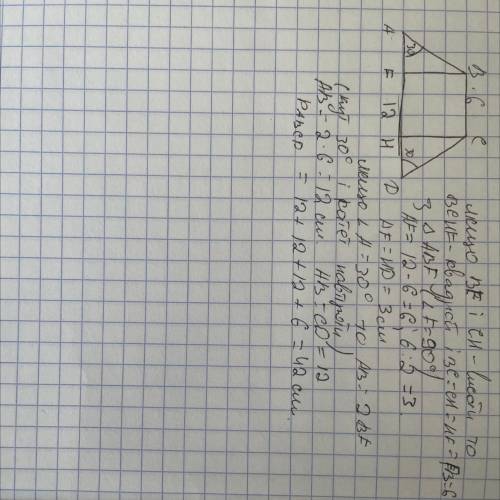 B 6 C
A F 12 H D
30
30
якщо BF і CH - висоти то
BCHF - квадрат і BC = CH = HF = FB = 6
З △ ABF (∠F = 90°)
AF = 12 - 6 = 6; 6 : 2 = 3.
AF = HD = 3 см
якщо ∠A = 30° то AB = 2 BF
(кут 30° і катет навпроти)
AB = 2 · 6 = 12 см. AB = CD = 12
PABCD = 12 + 12 + 12 + 6 = 42 см.